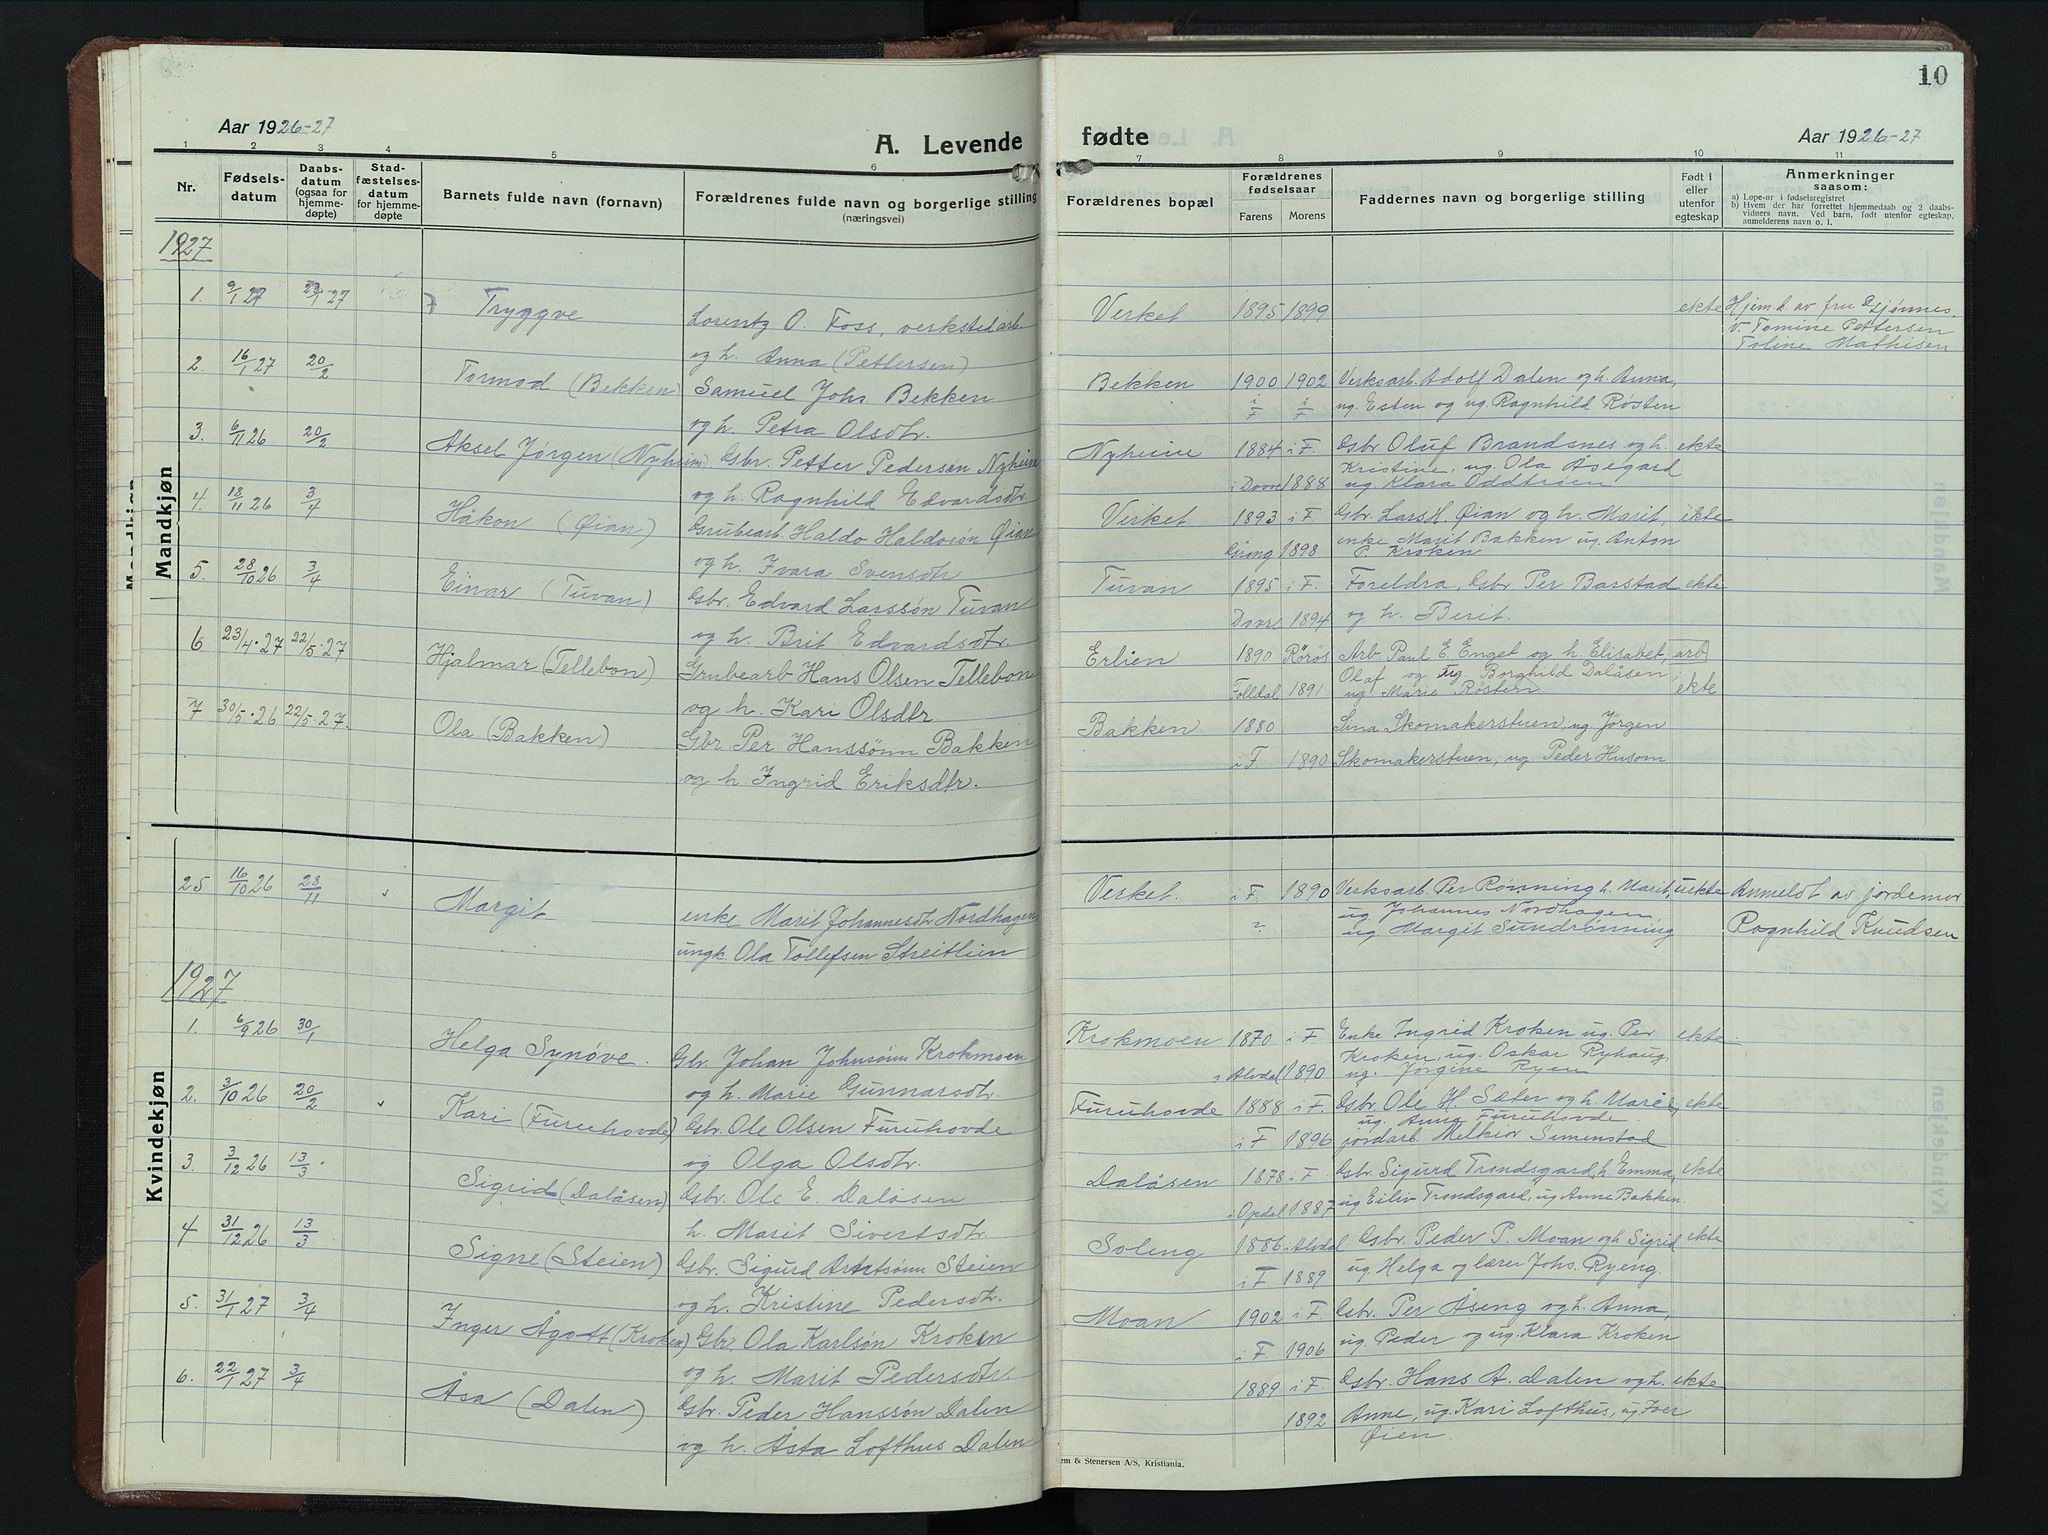 Aar 1926-27
A. Levende
1 2 3 4 5 6
Nr.
Fødsels-
datum
Daabs-
datum
(ogsaa for
hjemme-
døpte)
Stad-
fæstelses-
datum
for hjemme-
døpte
Barnets fulde navn (fornavn)
Forældrenes fulde navn og borgerlige stilling
(næringsvei)
Mandkjøn
1927
1. 9/1 27 23/1 27 Tryggve
Lorentz O. Foss, verkstedarb.
og h. Anna (Pettersen)
2. 16/1 27 20/2 Tormod (Bekken)
Samuel Johs. Bekken
og h. Petra Olsdtr.
3. 6/11 26 20/2 Aksel Jørgen (Nyheim)
Gbr. Petter Pedersøn Nyheim
og h. Ragnhild Edvardsdtr.
4. 18/11 26 3/4 Håkon (Øian)
Grubearb. Haldo Haldosøn Øian
og h. Ivara Svensdtr
5. 28/10 26 3/4 Einar (Tuvan)
Gbr. Edvard Larssøn Tuvan
og h. Brit Edvardsdtr.
6 23/4.27 22/5.27 Hjalmar (Tellebon)
Grubearb Hans Olsen Tellebon
og h. Kari Olsdtr.
7 30/5.26 22/5.27. Ola (Bakken)
Gbr Per Hanssønn Bakken
og h. Ingrid Eriksdtr.
Kvindekjøn
25 16/10 26 28/11 Margit
enke Marit Johannesdtr Nordhagen
ungk. Ola Tollefsen Streitlien
1927
1. 6/9 26 30/1 Helga Synøve.
Gbr. Johan Johnsønn Krokmoen
og h. Marie Gunnarsdtr.
2. 3/10 26 20/2 Kari (Furuhovde)
Gbr. Ole Olsen Furuhovde
og Olga Olsdtr.
3. 3/12 26 13/3. Sigrid (Dalåsen)
Gbr. Ole E. Dalåsen
h. Marit Sivertsdtr.
4 31/12 26 13/3 Signe (Steien)
Gbr. Sigurd Arntsønn Steien
og h. Kristine Pedersdtr.
5. 31/1 27 3/4 Inger Ågott (Kroken)
Gbr. Ola Karlsøn Kroken
og h. Marit Pedersdtr.
6. 22/1 27 3/4 Åsa (Dalen)
Gbr. Peder Hanssøn Dalen
og h. Åsta Lofthus Dalen
10
fødte
Aar 1926-27
7 8 9 10 11
Forældrenes bopæl
Forældrenes
fødselsaar
Farens Morens
Faddernes navn og borgerlige stilling
Født i
eller
utenfor
egteskap
Anmerkninger
saasom:
a) Løpe-nr i fødselsregistret
b) Hvem der har forrettet hjemmedaab og 2 daabs-
vidners navn. Ved barn, født utenfor egteskap,
anmelderens navn o. l.
Verket 1895 1899 ekte Hjem.d. av fru
V. Tomine Pettersen
Toline Mathisen
Bekken 1900 1902 Verksarb. Adolf Dalen og h. Anna,
i F i F ug. Esten og ug. Ragnhild Røsten
Nyheim 1884 i F. Gbr. Oluf Brandsnes og h. ekte
Kristine, ug. Ola Åsegard
i Dovre 1888 ug. Klara Oddtrøen
Verket 1893 i F Gbr. Lars H. Øian og h. Marit, ekte
enke Marit Bakken ug. Anton
Grong 1898 P. Kroken
Tuvan 1895 i F. Foreldra, Gbr Per Barstad ekte
Dovre 1894 og h. Berit.
Erlien 1890 Røros Arb. Paul E. Enget og h. Elisabet, arb
Olaf og ug Borghild Dalåsen,
Folldal 1891 ug Marie Røsten. ekte
Bakken 1880 Lina Skomakerstuen, ug. Jørgen
i F. 1890 Skomakerstuen, ug Peder Husom
Verket. i F. 1890 Verksarb. Per Rønning h. Marit, uekte Anmeldt av jordemor
ug Johannes Nordhagen
? ug Margit Sundrønning Ragnhild Knudsen
Krokmoen 1870 i F Enke Ingrid Kroken ug. Per ekte
Kroken, ug. Oskar Ryhaug,
i Alvdal 1890 ug. Jørgine Ryen
Furuhovde 1888 i F. Gbr. Ole H. Sæter og h. Marie, ekte
ug. Anna Furuhovde.
i F 1896 jordarb Melkior Simenstad
Dalåsen 1878 i F. Gbr. Sigurd Trondsgard, h. Emma, ekte
i Opdal 1887 ug Eiliv Trondsgard, ug Anna Bakken.
Soleng 1886 i Alvdal Gbr. Peder P. Moan og h Sigrid ekte
i F 1889 ug. Helga og lærer Johs. Ryeng.
Moan 1902 i F. Gbr. Per Åseng og h. Anna,
i F. 1906 ug. Peder og ug. Klara Kroken
1889 i F. Gbr. Hans A. Dalen og h. ekte
1892 Anne, ug. Kari Lofthus, ug Iver
Øien.
em & Stenersen A/S, Kristiania.